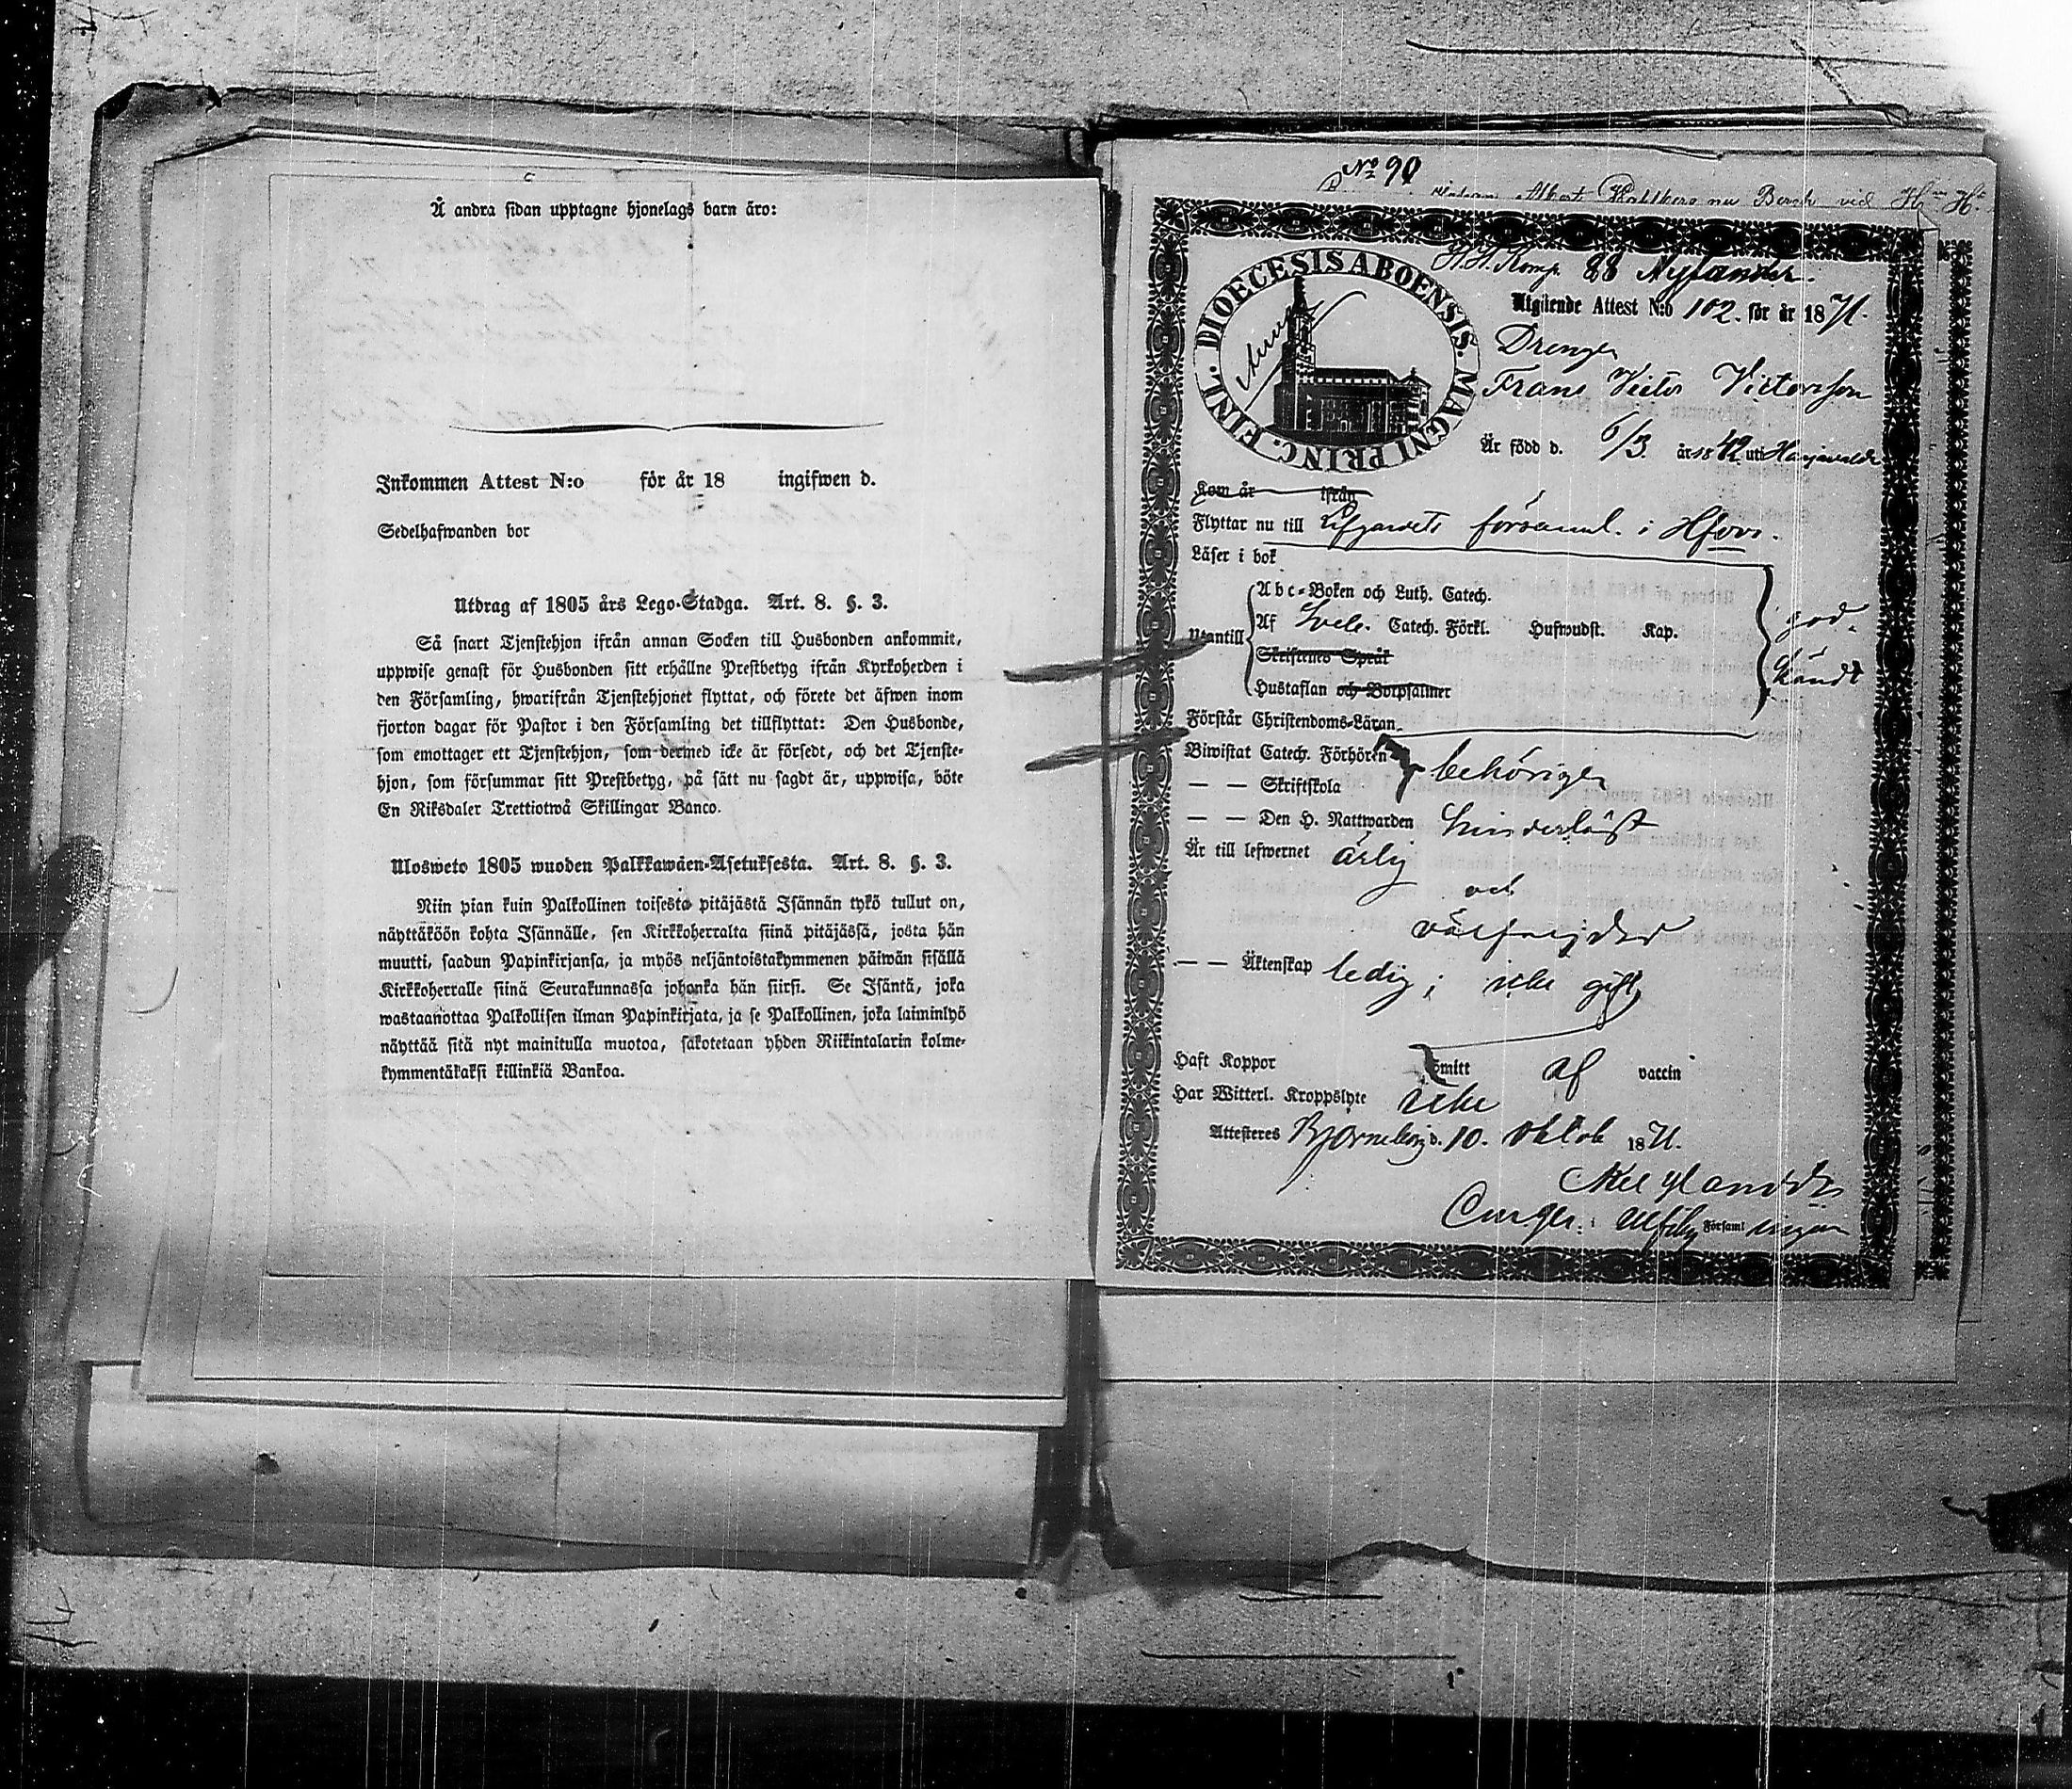 Å andra sidan upptagne hjonelags barn äro:
Inkommen Attest N:o för år 18 ingifwen d.
Sedelhafwanden bor
Utdrag af 1805 års Lego-Stadga. Art. 8. §. 3.
Så snart Tjenstehjon ifrån annan Socken till Husbonden ankommit,
uppwise genast för Husbonden sitt erhållne Prestbetyg ifrån Kyrkoherden i
den Församling, hwarifrån Tjenstehjonet flyttat, och förete det äfwen inom
fjorton dagar för Pastor i den Församling det tillflyttat: Den Husbonde,
som emottager ett Tjenstehjon, som dermed icke är försedt, och det Tjenste-
hjon, som försummar sitt Prestbetyg, på sätt nu sagdt är, uppwisa, böte
En Riksdaler Trettiotwå Skillingar Banco.
Ulosweto 1805 wuoden Palkkawäen-Asetuksesta. Art. 8. §. 3.
Niin pian kuin Palkollinen toisesta pitäjästä Isännän tykö tullut on,
näyttäköön kohta Isännälle, sen Kirkkoherralta siinä pitäjässä, josta hän
muutti, saadun Papinkirjansa, ja myös neljäntoistakymmenen päiwän sisällä
Kirkkoherralle siinä Seurakunnassa johonka hän siirsi. Se Isäntä, joka
wastaanottaa Palkollisen ilman Papinkirjata, ja se Palkollinen, joka laiminlyö
näyttää sitä nyt mainitulla muotoa, sakotetaan yhden Riikintalarin kolme-
kymmentäkaksi killinkiä Bankoa.
No 90
Albert nu vid
DIOECESIS ABOENSIS. MAGNI PRINC. FINL.
Komp. 88 Nylander.
Utgående Attest N:o 102. för år 1871.
Drengen
Frans Victor Victorsson
Är född d. 6/3 år 1842 uti Harjavalda
Kom år ifrån
Flyttar nu till Lifgardets församl. i Hfors.
Läser i bok
Abc-Boken och Luth. Catech.
Utantill Af Sveb. Catech. Förkl. Hufwudst. Kap.
Skriftenes Språk
Hustaflan och Botpsalmer
god-
kändt
Förstår Christendoms-Läran
Biwistat Catech. Förhören behörigen
— — Skriftskola
— — Den H. Nattwarden hinderlöst
Är till lefwernet ärlig
och
välfrejdad
— — Äktenskap ledig; icke gift
Haft Koppor smitt af vaccin
Har Witterl. Kroppslyte icke
Attesteres Björneborg d. 10. Oktob 1871.
Nylander
i Ulfsby Församlingen